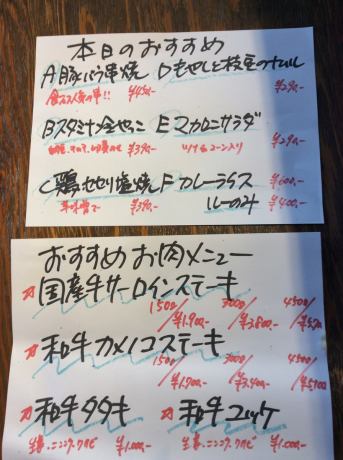 本日のおすすめ
A豚バラ串焼 Dもやしと枝豆のナムル
¥450- ¥290-
Bスタミナ冷やっこ Eマカロニサラダ
¥390- ツナ&コーン入り ¥290-
C鶏せせり塩焼 Fカレーライス ¥600-
¥390- ルーのみ ¥400-
おすすめお肉メニュー
国産牛サーロインステーキ
150g/¥1.900- 300g/¥3.800- 450g
和牛カメノコステーキ
150g/¥1.700- 300g/¥3.400- 450g/¥5.100
和牛タタキ 和牛ユッケ
生姜.ニンニク.ワサビ ¥1.000- 生姜.ニンニク.ワサビ ¥1.000-